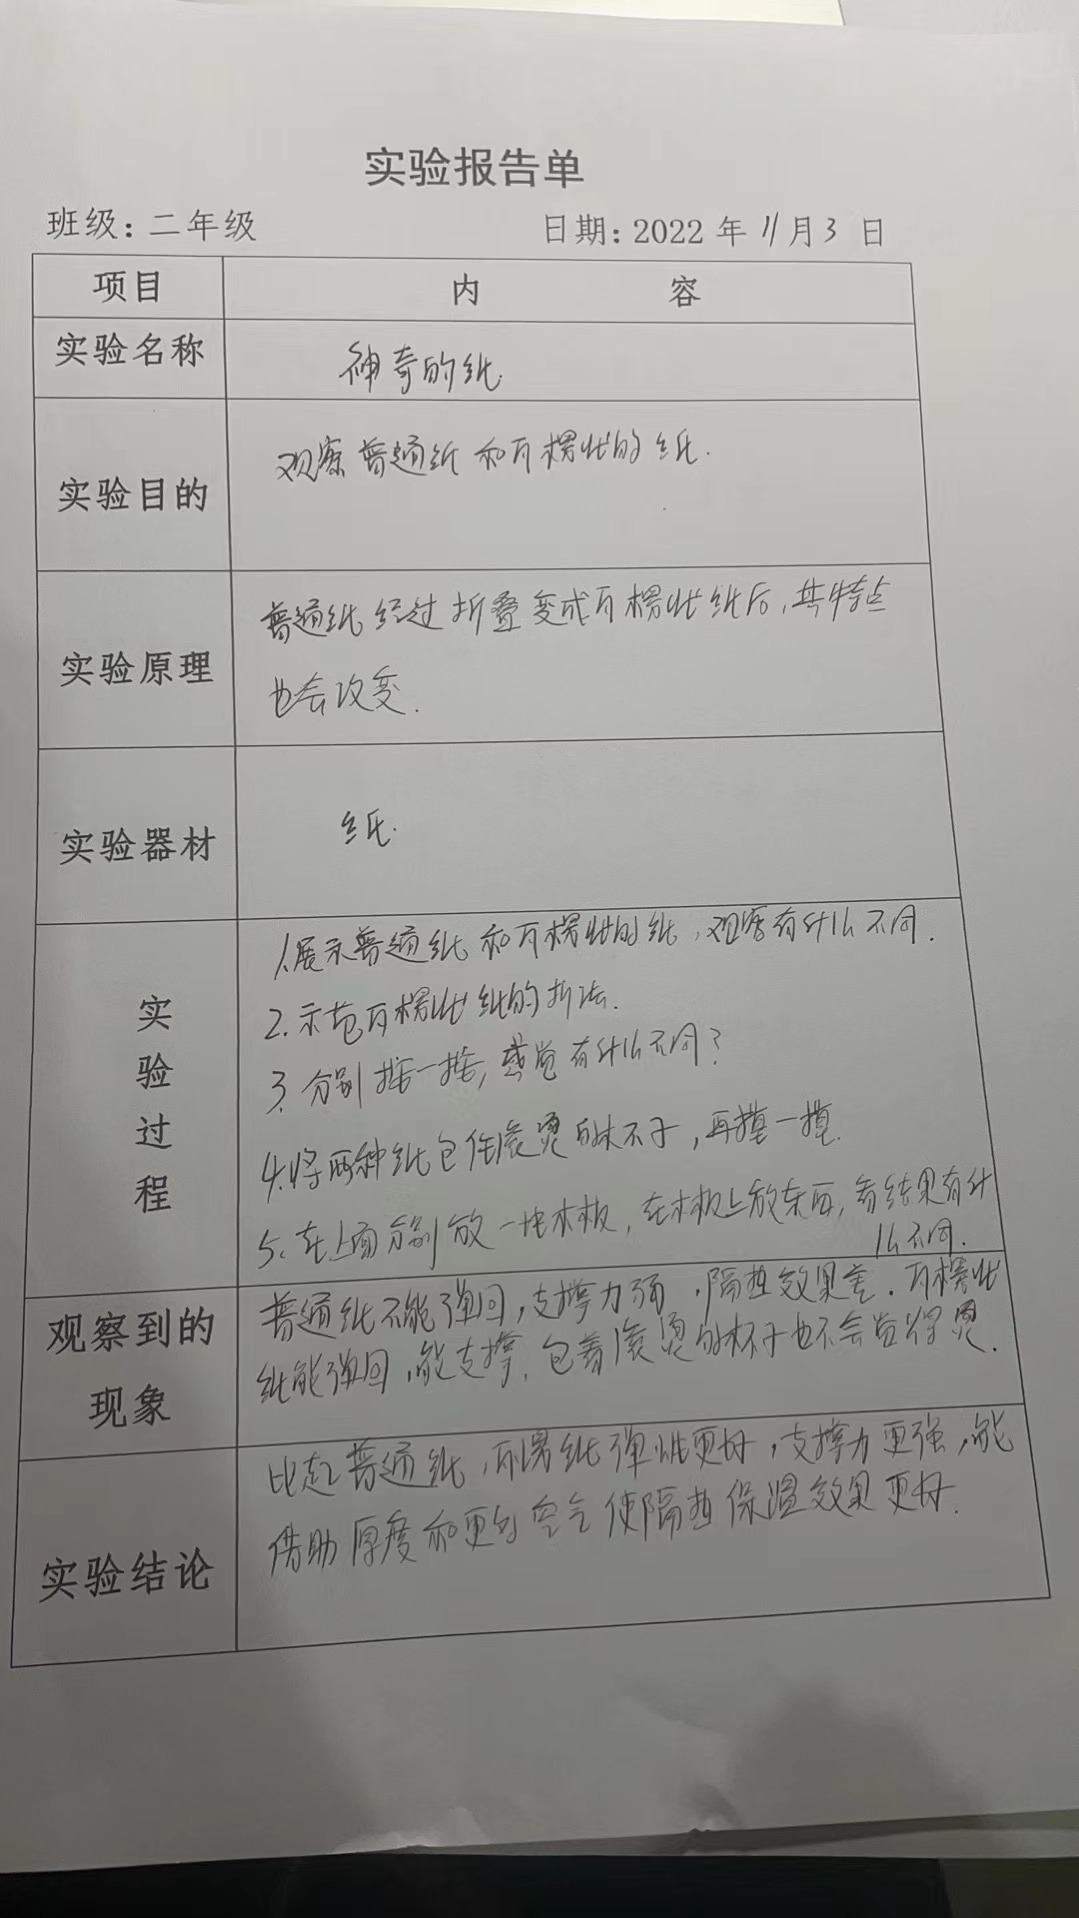 实验报告单
班级：二年级 日期：2022 年 11 月 3 日
项目 内 容
实验名称 神奇的纸.
实验目的 观察普通纸和瓦楞状的纸.
实验原理 普通纸经过折叠变成瓦楞状纸后，其特点
也会改变.
实验器材 纸.
实验过程 1.展示普通纸和瓦楞状的纸，观察有什么不同.
2.示范瓦楞状纸的折法.
3.分别按一按，感觉有什么不同？
4.将两种纸包住滚烫的杯子，再摸一摸.
5.在上面分别放一块木板，在木板上放东西，看结果有什
么不同.
观察到的现象 普通纸不能弹回，支撑力弱，隔热效果差．瓦楞状
纸能弹回，能支撑，包着滚烫的杯子也不会觉得烫.
实验结论 比起普通纸，瓦楞纸弹性更好，支撑力更强，能
借助厚度和更多空气使隔热保温效果更好.